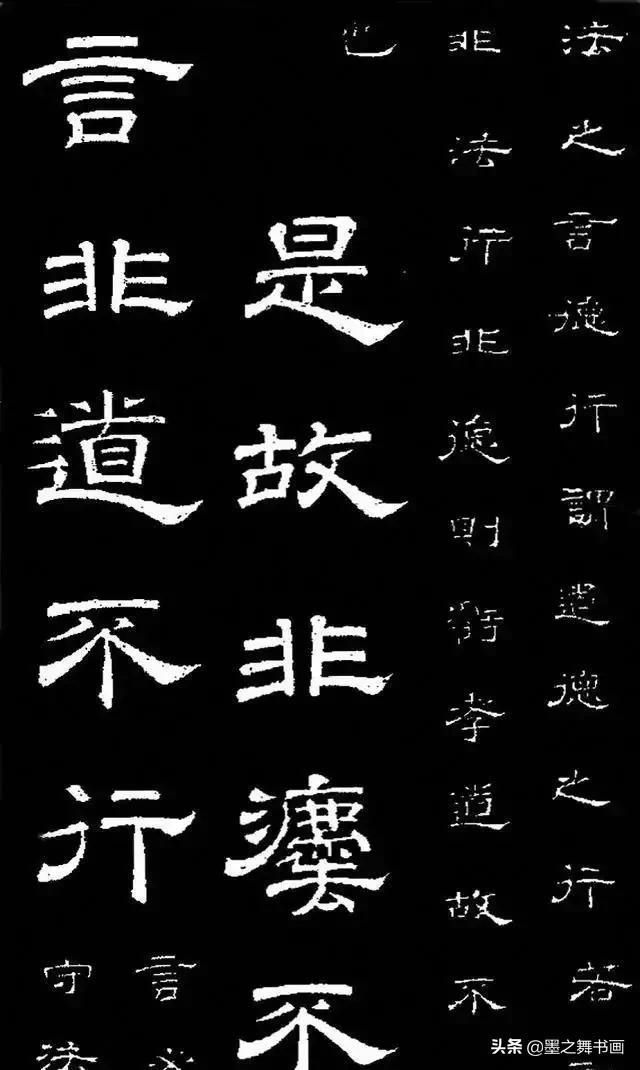 法之言德行謂道德之行若
非法行非德則虧孝道故不
也
是故非灋不
言非道不行
言必
守法
头条 @墨之舞书画